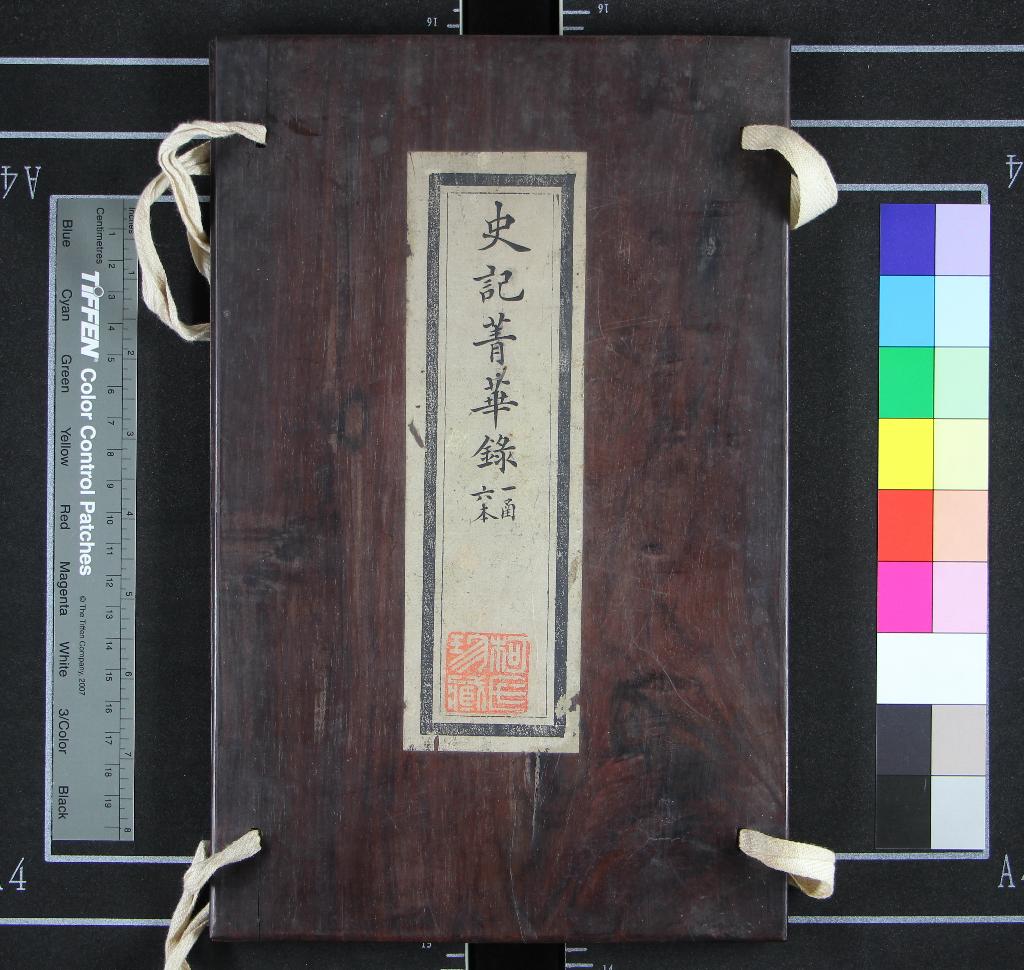 史記菁華錄
一函
六本
柯氏
珍藏
16
16
A4
4
A4
A4
15
14
Inches
1
2
3
4
5
6
7
8
Centimetres
1
2
3
4
5
6
7
8
9
10
11
12
13
14
15
16
17
18
19
TIFFEN Color Control Patches
© The Tiffen Company, 2007
Blue
Cyan
Green
Yellow
Red
Magenta
White
3/Color
Black